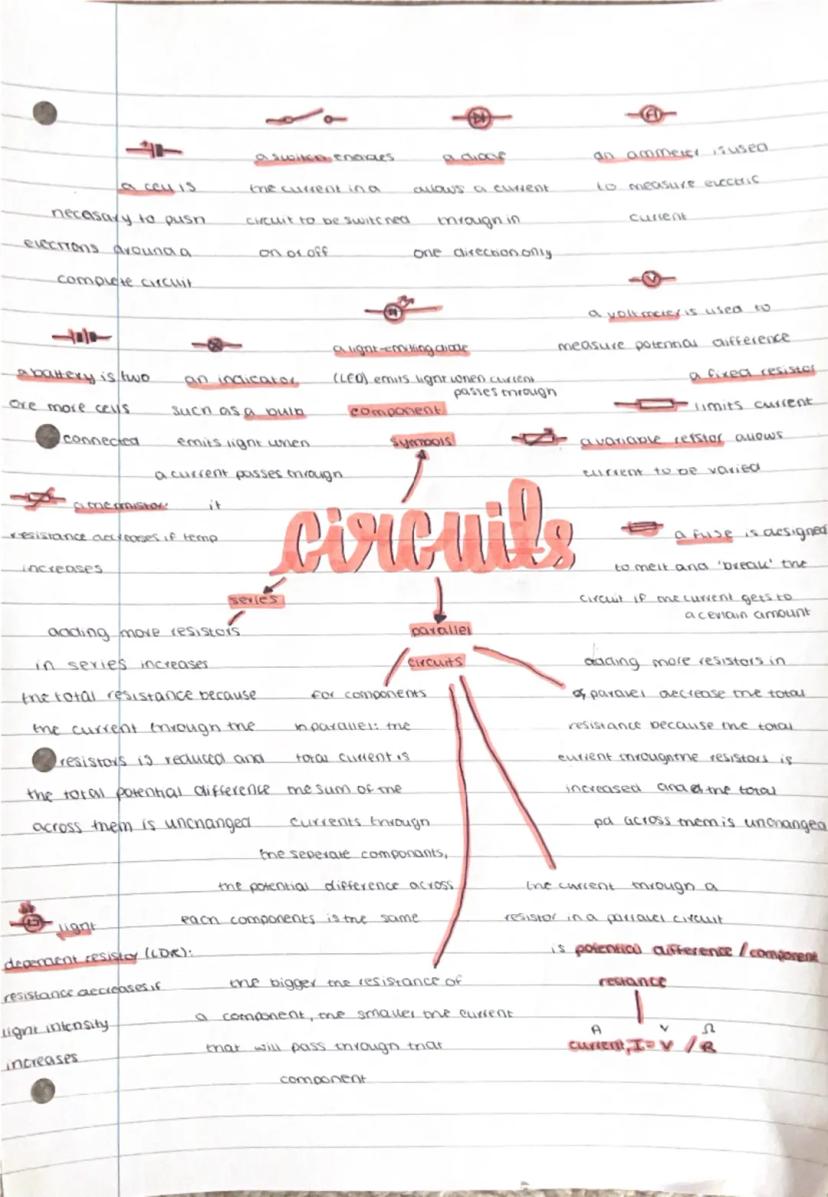 a cell is
necessary to push
electrons around a
complete circuit
a switch enables
the current in a
circuit to be switched
on or off
a diode
allows a current
through in
one direction only
A
an ammeter is used
to measure electric
current
V
a voltmeter is used to
measure potential difference
a battery is two
ore more cells
connected
an indicator
such as a bulb
emits light when
a current passes through
a light-emitting diode
(LED) emits light when current
passes through
component
symbols
a fixed resistor
limits current
a variable reistor allows
current to be varied
a thermistor: it
resistance decreases if temp
increases
circuits
a fuse is designed
to melt and 'break' the
circuit if the current gets to
a certain amount
series
adding more resistors
in series increases
the total resistance because
the current through the
resistors is reduced and
the total potential difference
across them is unchanged
parallel
circuits
for components
in parallel: the
total current is
the sum of the
currents through
the seperate componants,
the potential difference across
each components is the same
adding more resistors in
parallel decrease the total
resistance because the total
current through the resistors is
increased and the total
pd across them is unchanged
the current through a
resistor in a parallel circuit
is potential difference / component
resiance
A V Ω
current, I = V / R
the bigger the resistance of
a component, the smaller the current
that will pass through that
component
light
depement resistor (LDR):
resistance decreases if
light intensity
increases